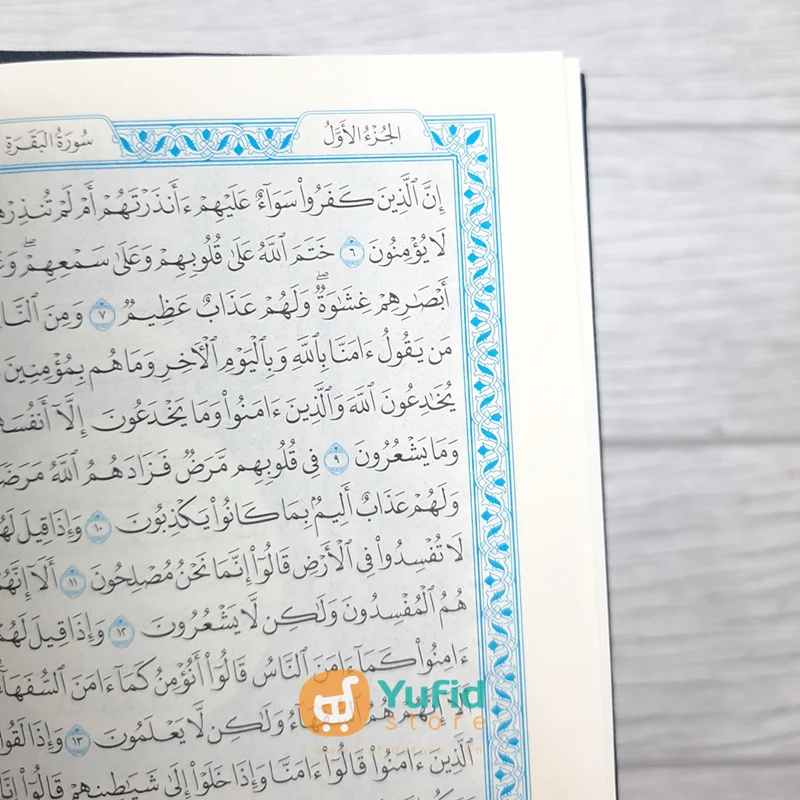 الجُزْءُ الأَوَّلُ
سُورَةُ البَقَرَةِ
إِنَّ ٱلَّذِينَ كَفَرُوا۟ سَوَآءٌ عَلَيْهِمْ ءَأَنذَرْتَهُمْ أَمْ لَمْ تُنذِرْهُ
لَا يُؤْمِنُونَ ٦ خَتَمَ ٱللَّهُ عَلَىٰ قُلُوبِهِمْ وَعَلَىٰ سَمْعِهِمْ ۖ وَعَ
أَبْصَٰرِهِمْ غِشَٰوَةٌ ۖ وَلَهُمْ عَذَابٌ عَظِيمٌ ٧ وَمِنَ ٱلنَّا
مَن يَقُولُ ءَامَنَّا بِٱللَّهِ وَبِٱلْيَوْمِ ٱلْـَٔاخِرِ وَمَا هُم بِمُؤْمِنِينَ
يُخَٰدِعُونَ ٱللَّهَ وَٱلَّذِينَ ءَامَنُوا۟ وَمَا يَخْدَعُونَ إِلَّآ أَنفُسَهُ
وَمَا يَشْعُرُونَ ٩ فِى قُلُوبِهِم مَّرَضٌ فَزَادَهُمُ ٱللَّهُ مَرَضً
وَلَهُمْ عَذَابٌ أَلِيمٌۢ بِمَا كَانُوا۟ يَكْذِبُونَ ١٠ وَإِذَا قِيلَ لَهُ
لَا تُفْسِدُوا۟ فِى ٱلْأَرْضِ قَالُوٓا۟ إِنَّمَا نَحْنُ مُصْلِحُونَ ١١ أَلَآ إِنَّهُ
هُمُ ٱلْمُفْسِدُونَ وَلَٰكِن لَّا يَشْعُرُونَ ١٢ وَإِذَا قِيلَ لَهُمْ
ءَامِنُوا۟ كَمَآ ءَامَنَ ٱلنَّاسُ قَالُوٓا۟ أَنُؤْمِنُ كَمَآ ءَامَنَ ٱلسُّفَهَآءُ
أَلَآ إِنَّهُمْ هُمُ ٱلسُّفَهَآءُ وَلَٰكِن لَّا يَعْلَمُونَ ١٣ وَإِذَا لَقُوا۟
ٱلَّذِينَ ءَامَنُوا۟ قَالُوٓا۟ ءَامَنَّا وَإِذَا خَلَوْا۟ إِلَىٰ شَيَٰطِينِهِمْ قَالُوٓا۟ إِنَّا
Yufid
store